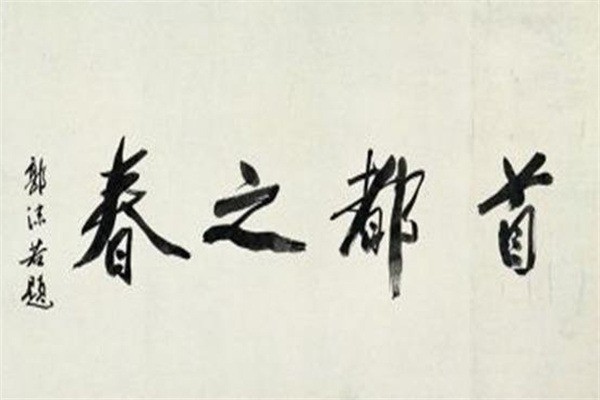 首都之春
郭沫若题